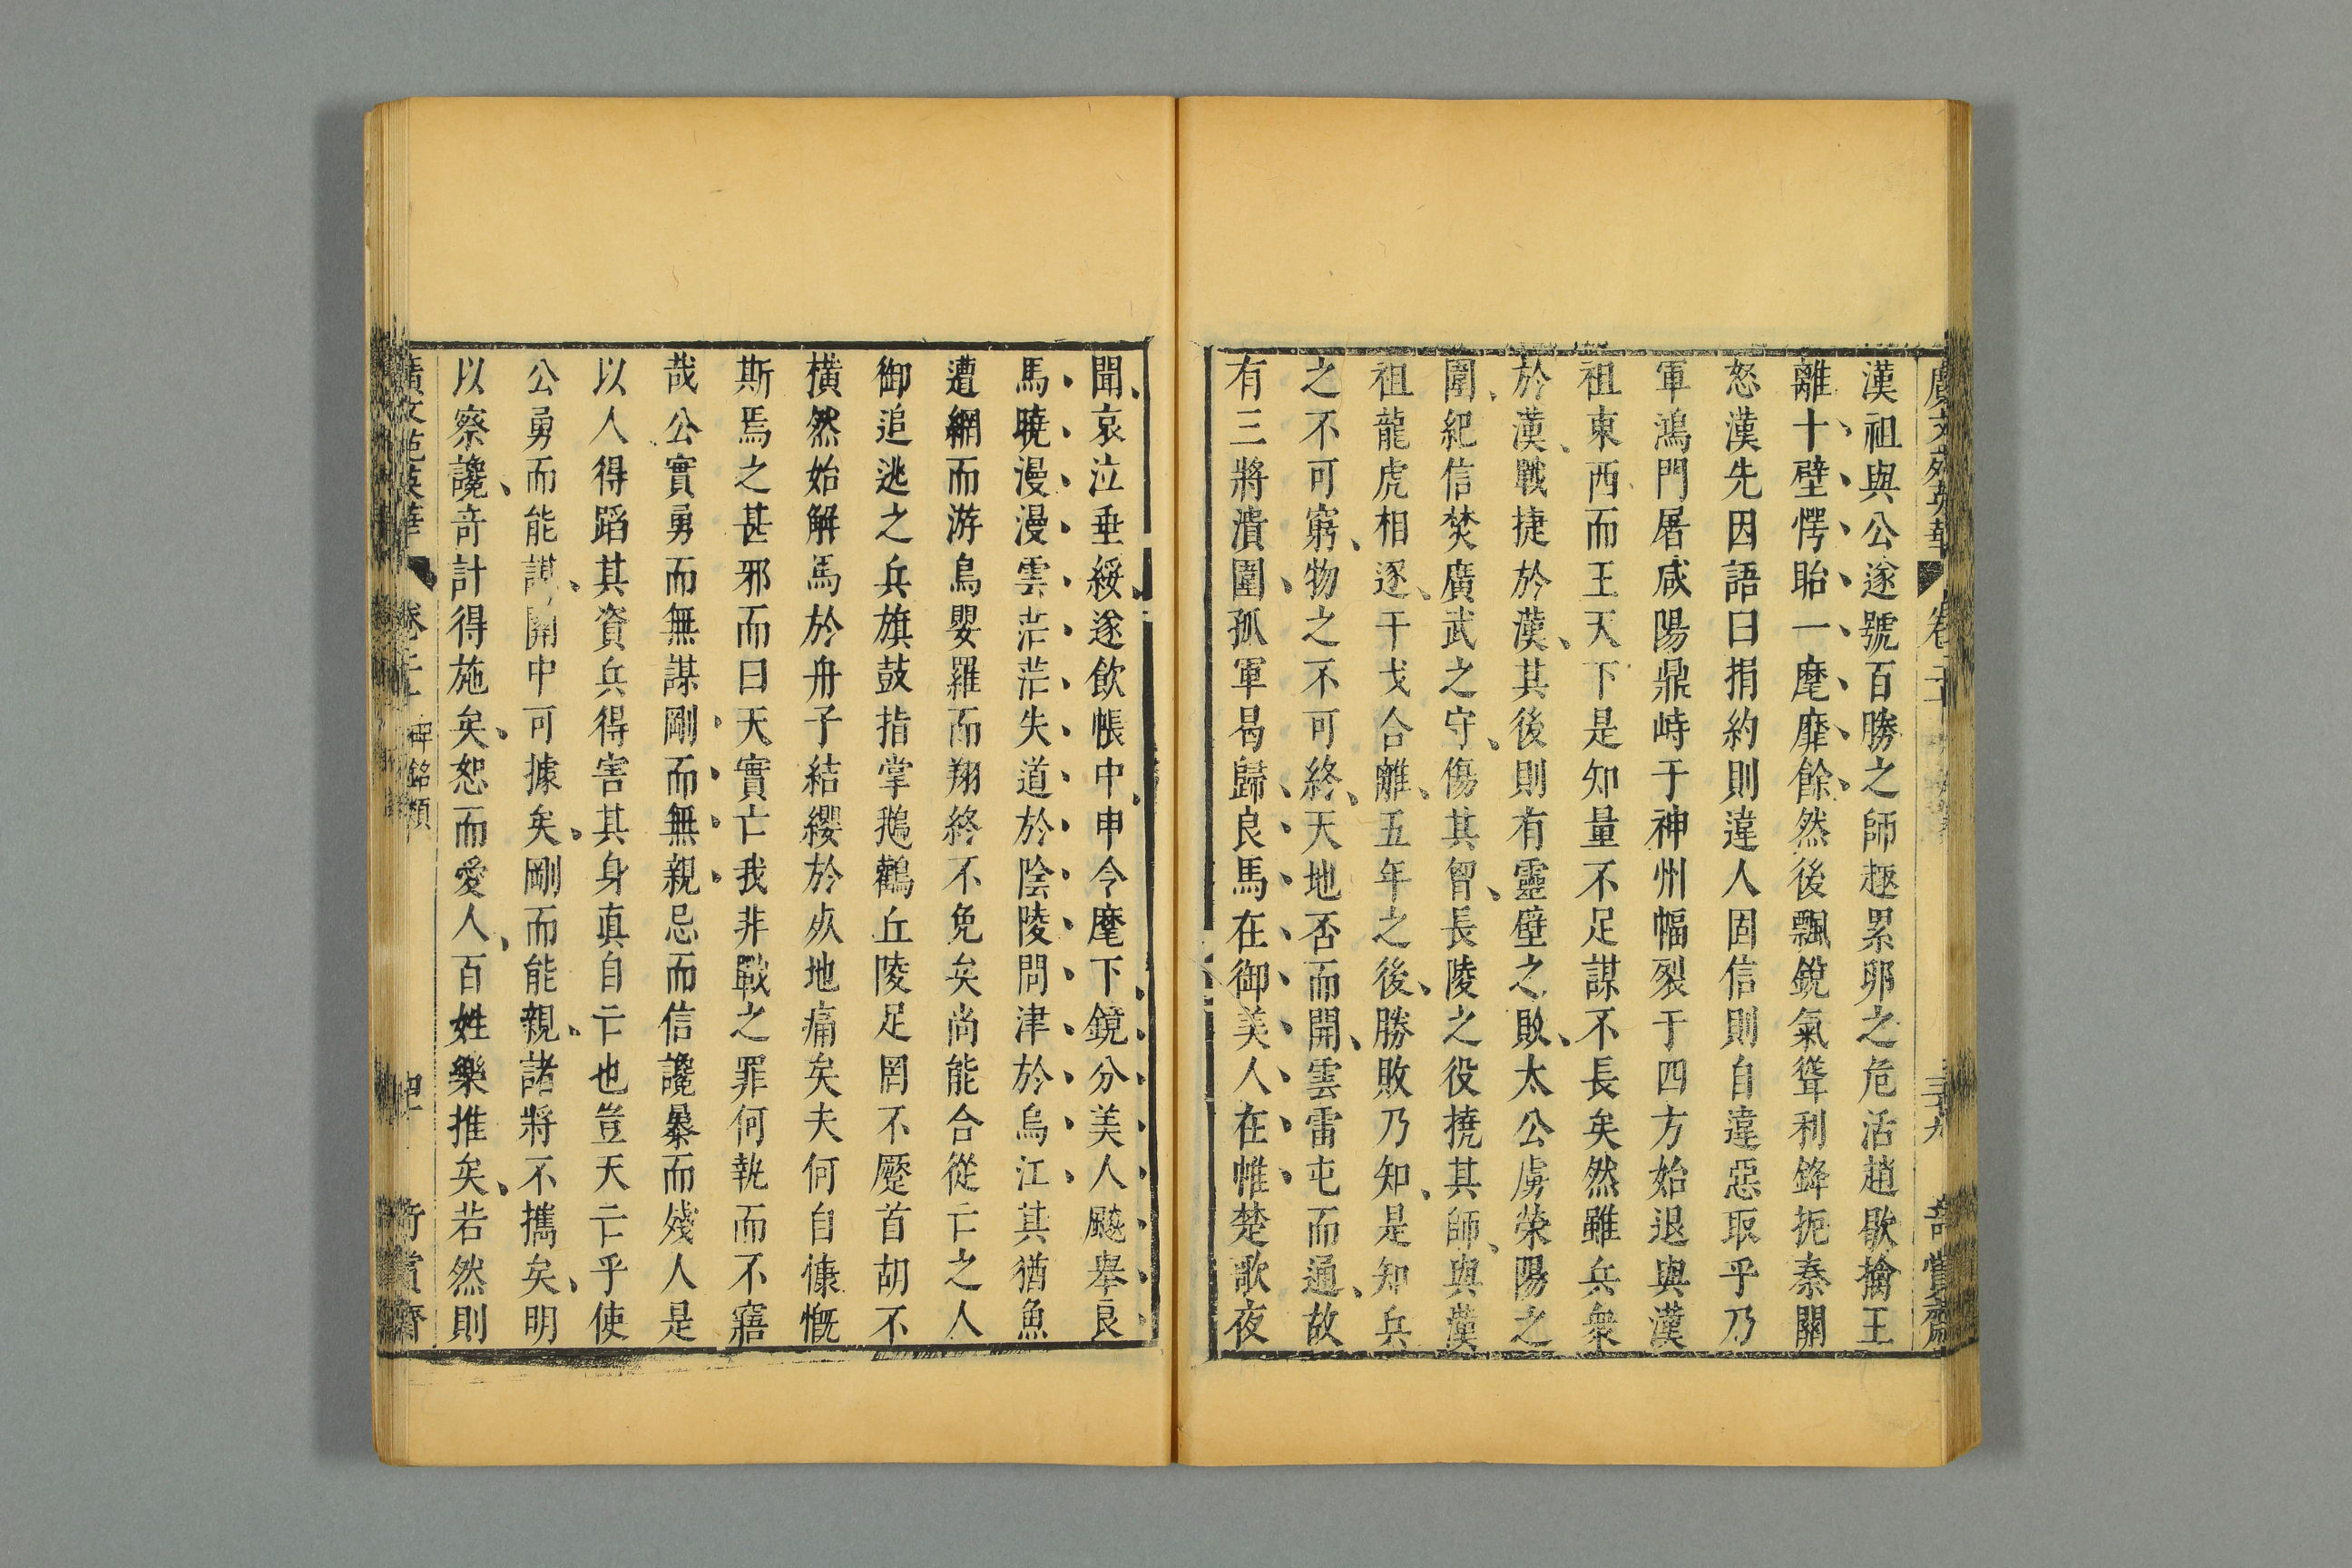 漢祖與公遂號百勝之師極累卵之危活趙歇擒王
離十壁愕眙一麾靡餘然後飄銳氣聳利鋒扼秦關
怒漢先因語曰捐約則違人固信則自違惡取乎乃
軍鴻門屠咸陽鼎峙于神州幅裂于四方始退與漢
祖東西而王天下是知量不足謀不長矣然雖兵衆
於漢戰捷於漢其後則有靈壁之敗太公虜滎陽之
圍紀信焚廣武之守傷其智長陵之役撓其師與漢
祖龍虎相逐干戈合離五年之後勝敗乃知是知兵
之不可窮物之不可終天地否而開雲雷屯而通故
有三將潰圍孤軍曷歸良馬在御美人在帷楚歌夜
聞哀泣垂綏遂飲帳中申令麾下鏡分美人飈舉良
馬曉漫漫雲茫茫失道於陰陵問津於烏江其猶魚
遭網而游鳥嬰羅而翔終不免矣尚能合從亡之人
御追逃之兵旗鼓指掌鵝鸛丘陵足罔不蹙首胡不
橫然始解馬於舟子結纓於灰地痛矣夫何自慷慨
斯焉之甚邪而曰天實亡我非戰之罪何執而不寤
哉公實勇而無謀剛而無親忌而信讒暴而殘人是
以人得蹈其資兵得害其身真自亡也豈天亡乎使
公勇而能謀關中可據矣剛而能親諸將不攜矣明
以察讒奇計得施矣恕而愛人百姓樂推矣若然則
廣文苑英華 卷二十 碑銘類 四十 奇賞齋